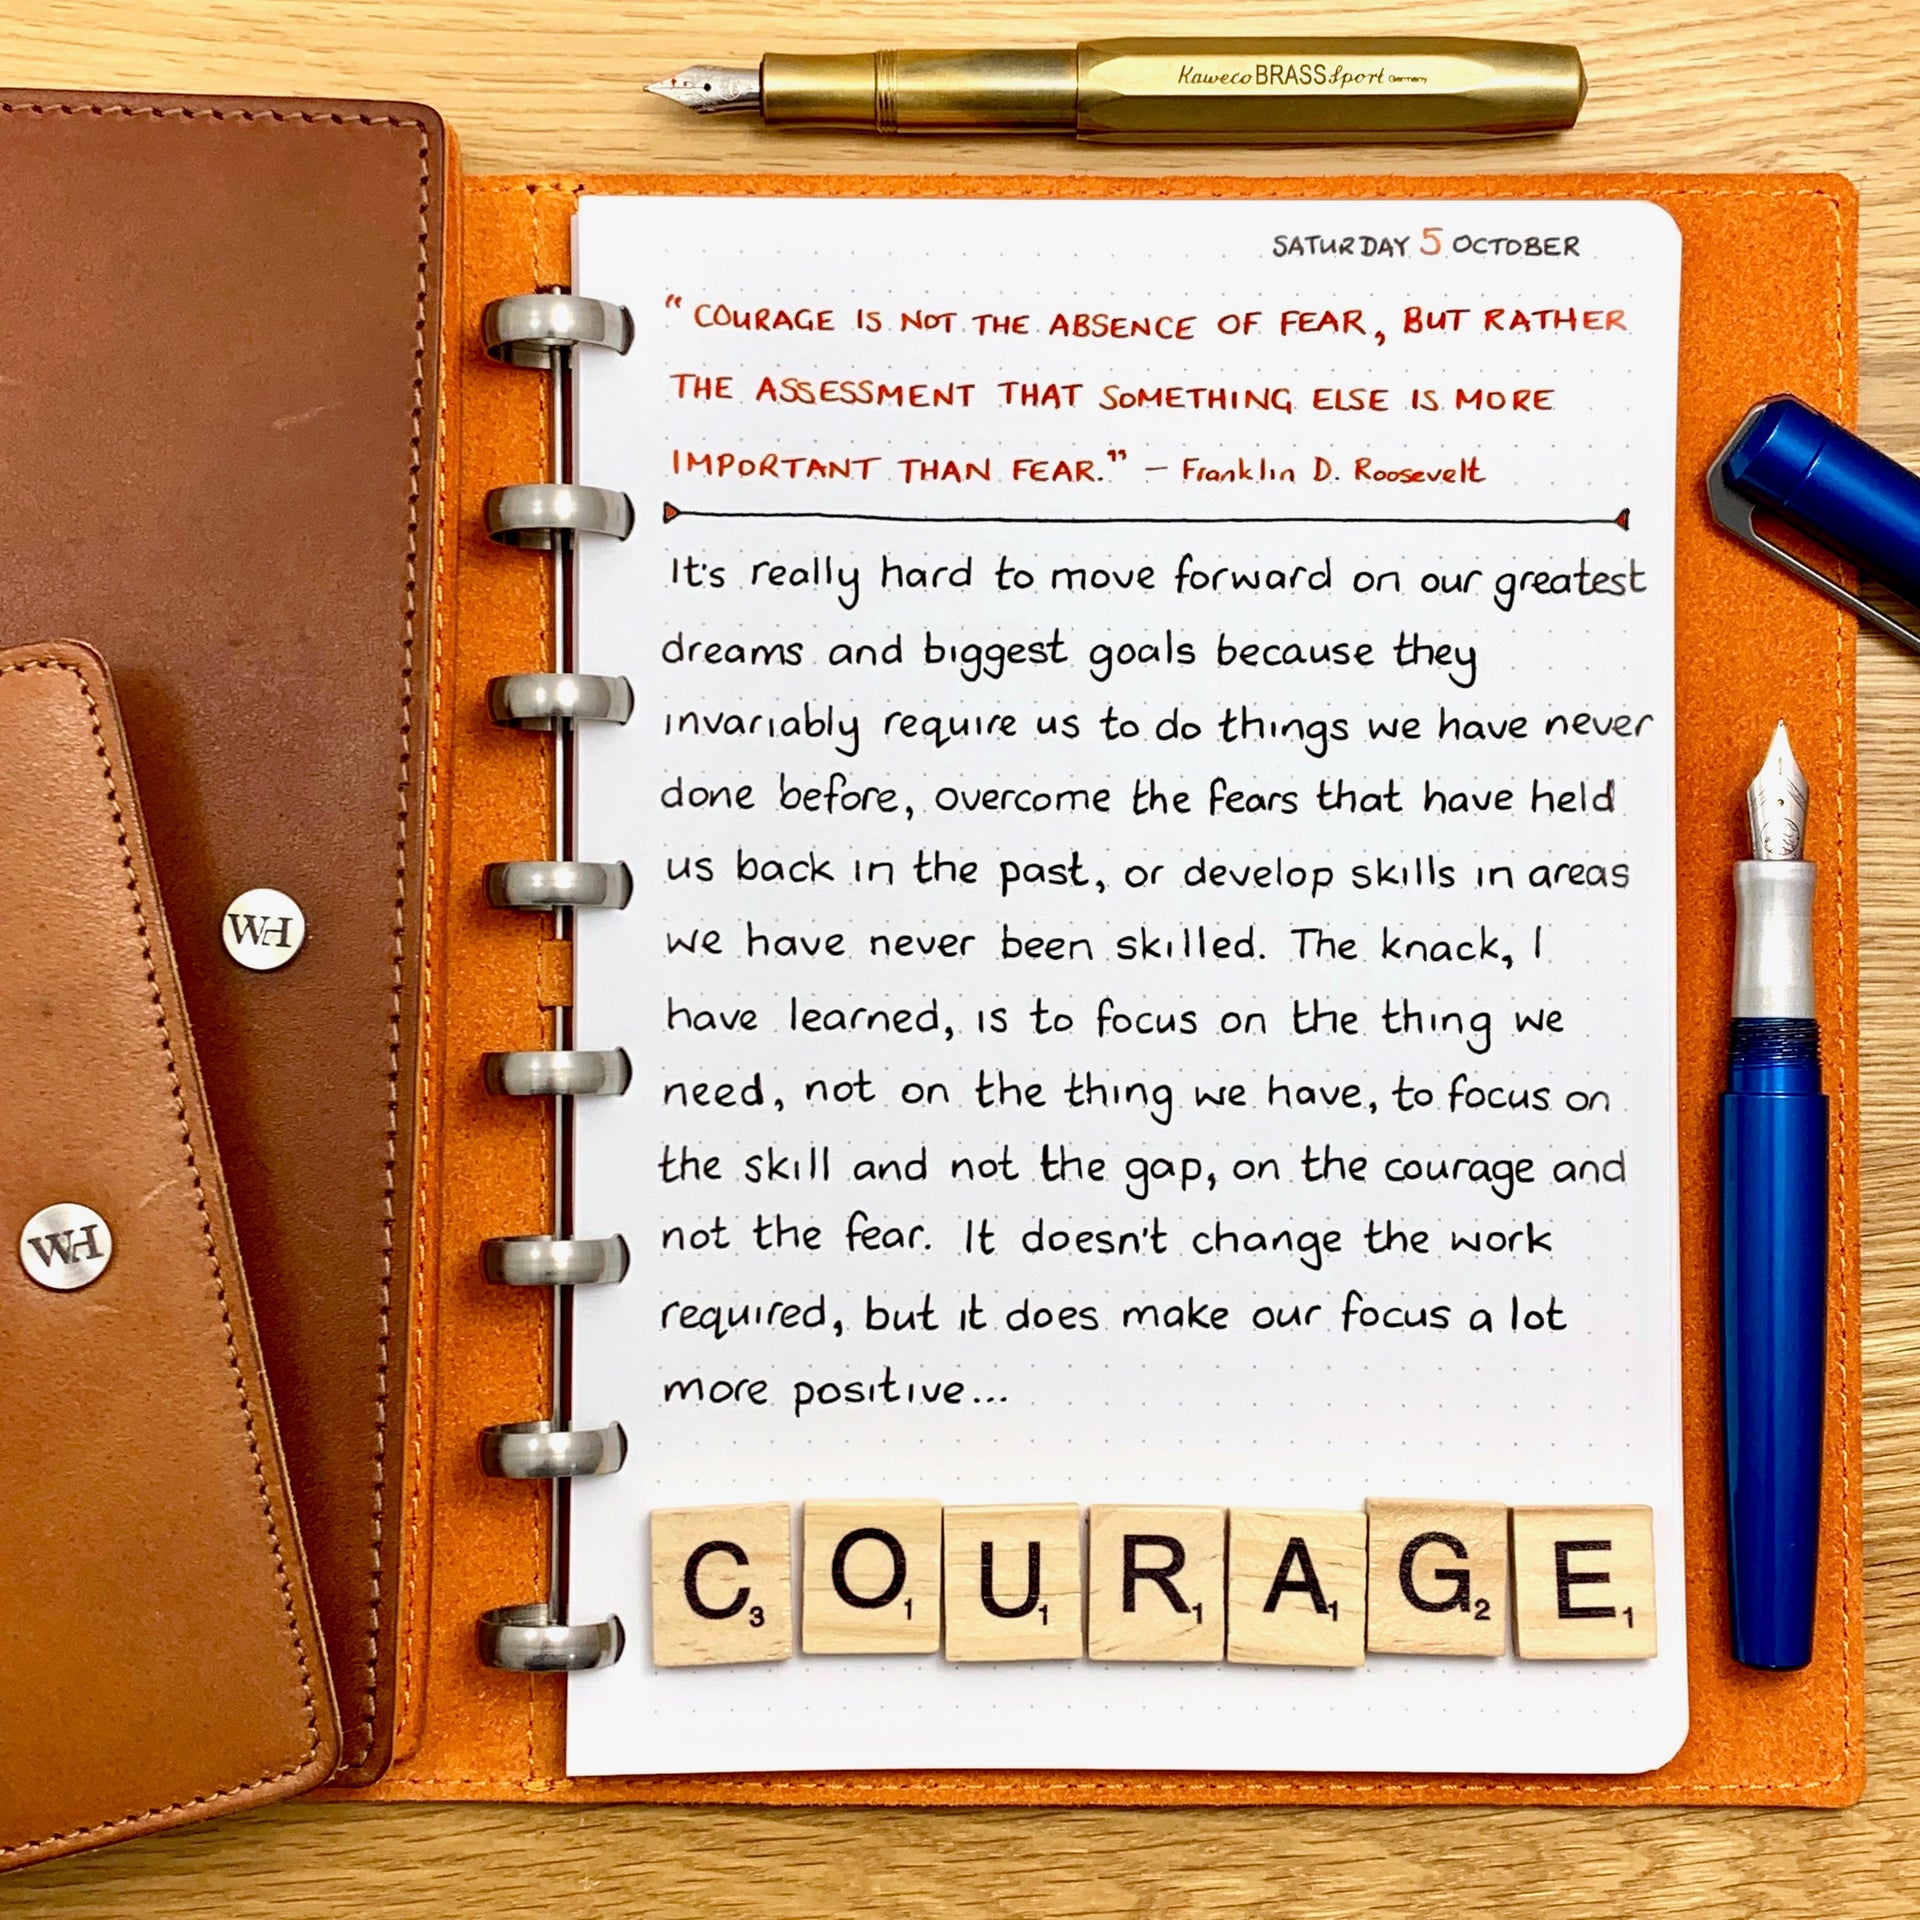 Kaweco BRASS Sport Germany
SATURDAY 5 OCTOBER
“COURAGE IS NOT THE ABSENCE OF FEAR, BUT RATHER
THE ASSESSMENT THAT SOMETHING ELSE IS MORE
IMPORTANT THAN FEAR.” – Franklin D. Roosevelt
It's really hard to move forward on our greatest
dreams and biggest goals because they
invariably require us to do things we have never
done before, overcome the fears that have held
us back in the past, or develop skills in areas
we have never been skilled. The knack, I
have learned, is to focus on the thing we
need, not on the thing we have, to focus on
the skill and not the gap, on the courage and
not the fear. It doesn't change the work
required, but it does make our focus a lot
more positive...
WH
WH
C3 O1 U1 R1 A1 G2 E1